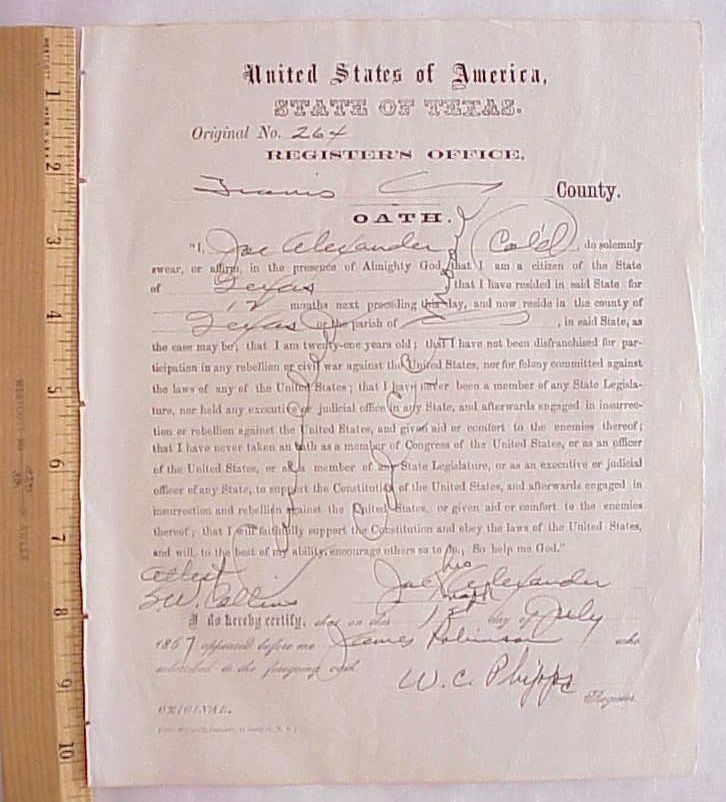 United States of America,
STATE OF TEXAS.
Original No. 264
REGISTER'S OFFICE,
Travis County.
OATH.
"I, Joe Alexander (Col'd), do solemnly
swear, or affirm, in the presence of Almighty God, that I am a citizen of the State
of Texas that I have resided in said State for
12 months next preceding this day, and now reside in the county of
Texas or the parish of , in said State, as
the case may be; that I am twenty-one years old; that I have not been disfranchised for par-
ticipation in any rebellion or civil war against the United States, nor for felony committed against
the laws of any of the United States; that I have never been a member of any State Legisla-
ture, nor held any executive or judicial office in any State, and afterwards engaged in insurrec-
tion or rebellion against the United States, and given aid or comfort to the enemies thereof;
that I have never taken an oath as a member of Congress of the United States, or as an officer
of the United States, or as a member of any State Legislature, or as an executive or judicial
officer of any State, to support the Constitution of the United States, and afterwards engaged in
insurrection and rebellion against the United States, or given aid or comfort to the enemies
thereof; that I will faithfully support the Constitution and obey the laws of the United States,
and will, to the best of my ability, encourage others so to do, So help me God."
his
Attest Joe X Alexander
mark
S.W. Collins
I do hereby certify, that on this 1st day of July
1867 appeared before me James Robinson who
subscribed to the foregoing oath.
W. C. Phipps
Register.
ORIGINAL.
1
2
3
4
5
6
7
8
9
10